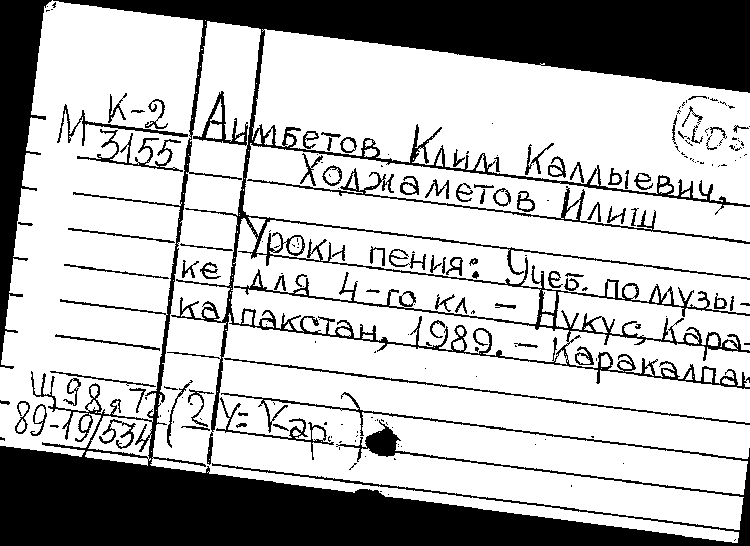 К-2
М 3155
Д05
Аимбетов, Клим Каллыевич,
Ходжаметов Илиш
Уроки пения: Учеб. по музы-
ке для 4-го кл. – Нукус, Кара-
калпакстан, 1989. – Каракалпак
Щ98.я72 (2 У= Кар.)
89-19/534